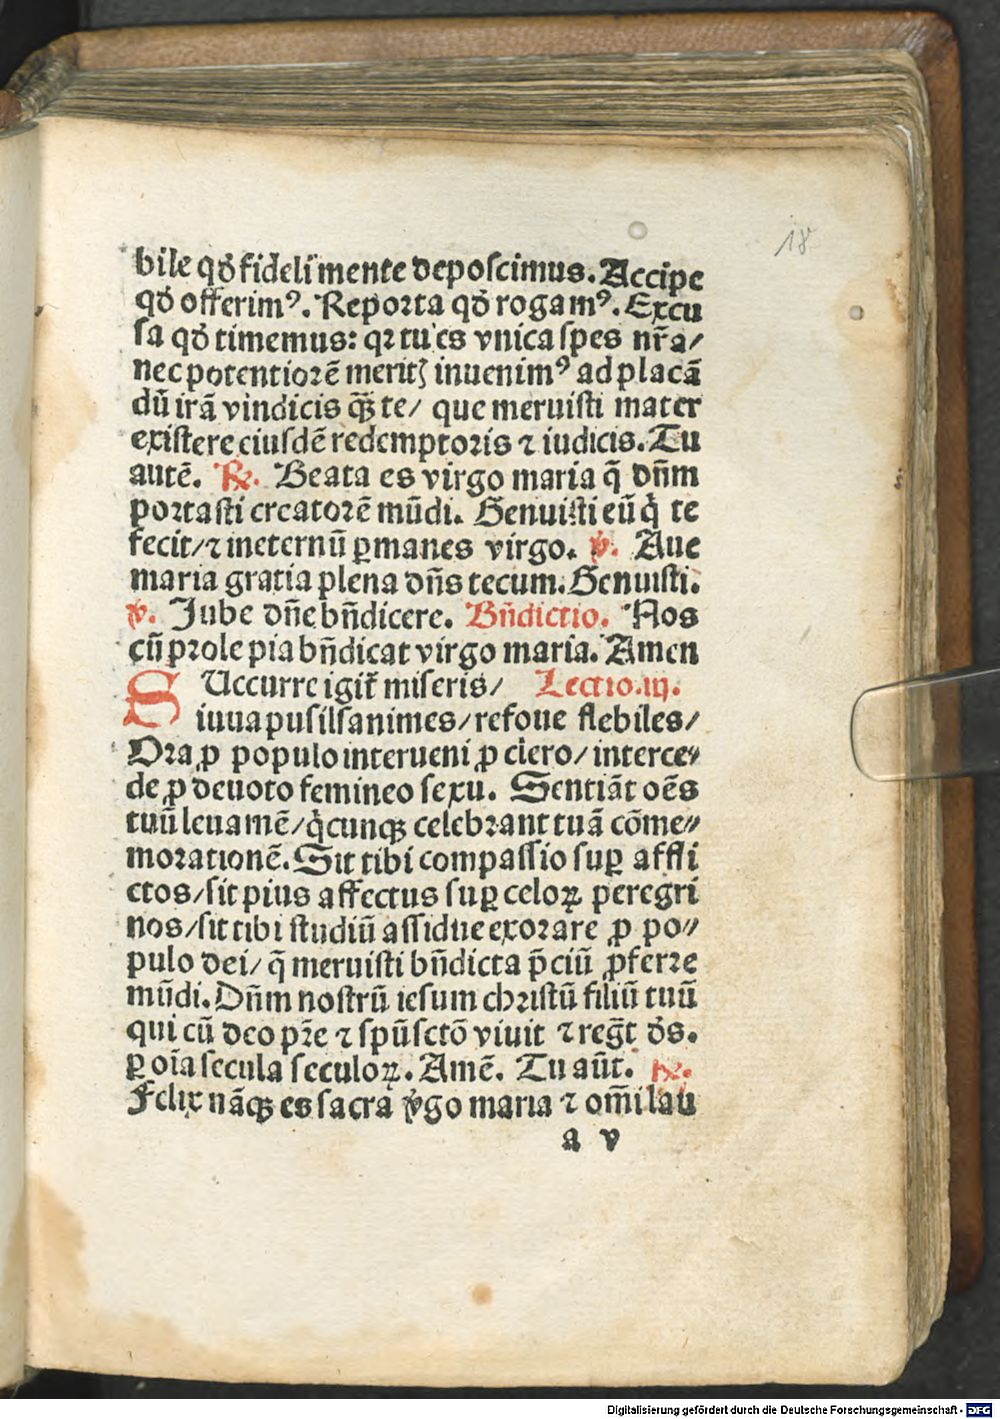 18
bile qď fideli mente deposcimus. Accipe
qď offerimꝰ. Reporta qď rogamꝰ. Excu
sa qď timemus: qꝛ tu es vnica spes nr̄a/
nec potentiorē meritꝫ inuenimꝰ ad placā
dū irā vindicis qꝫ̄ te/ que meruisti mater
existere eiusdē redemptoris ⁊ iudicis. Tu
autē. ℞. Beata es virgo maria q̄ dn̄m
portasti creatorē mūdi. Genuisti eū q̇ te
fecit/⁊ ineternū ꝑmanes virgo. ℣. Aue
maria gratia plena dn̄s tecum. Genuisti.
℣. Jube dn̄e bn̄dicere. Bn̄dictio. Nos
cū prole pia bn̄dicat virgo maria. Amen
SUccurre igit̄ miseris/ Lectio.iij.
iuua pusilſanimes/refoue flebiles/
Ora ꝓ populo interueni ꝓ clero/ interce⸗
de ꝓ deuoto femineo sexu. Sentiāt oēs
tuū leuamē/q̇cunqꝫ celebrant tuā cōme⸗
morationē. Sit tibi compassio suꝑ affli
ctos/sit pius affectus suꝑ celoꝝ peregri
nos/sit tibi studiū assidue exorare ꝓ po⸗
pulo dei/ q̄ meruisti bn̄dicta p̄ciū ꝓferre
mūdi. Dn̄m nostrū iesum christū filiū tuū
qui cū deo pr̄e ⁊ spū sctō viuit ⁊ regt̄ ds̄.
ꝑ oīa secula seculoꝝ. Amē. Tu aūt. ℞.
Felix nāqꝫ es sacra v̇go maria ⁊ om̄i lau
a v
Digitalisierung gefördert durch die Deutsche Forschungsgemeinschaft - DFG